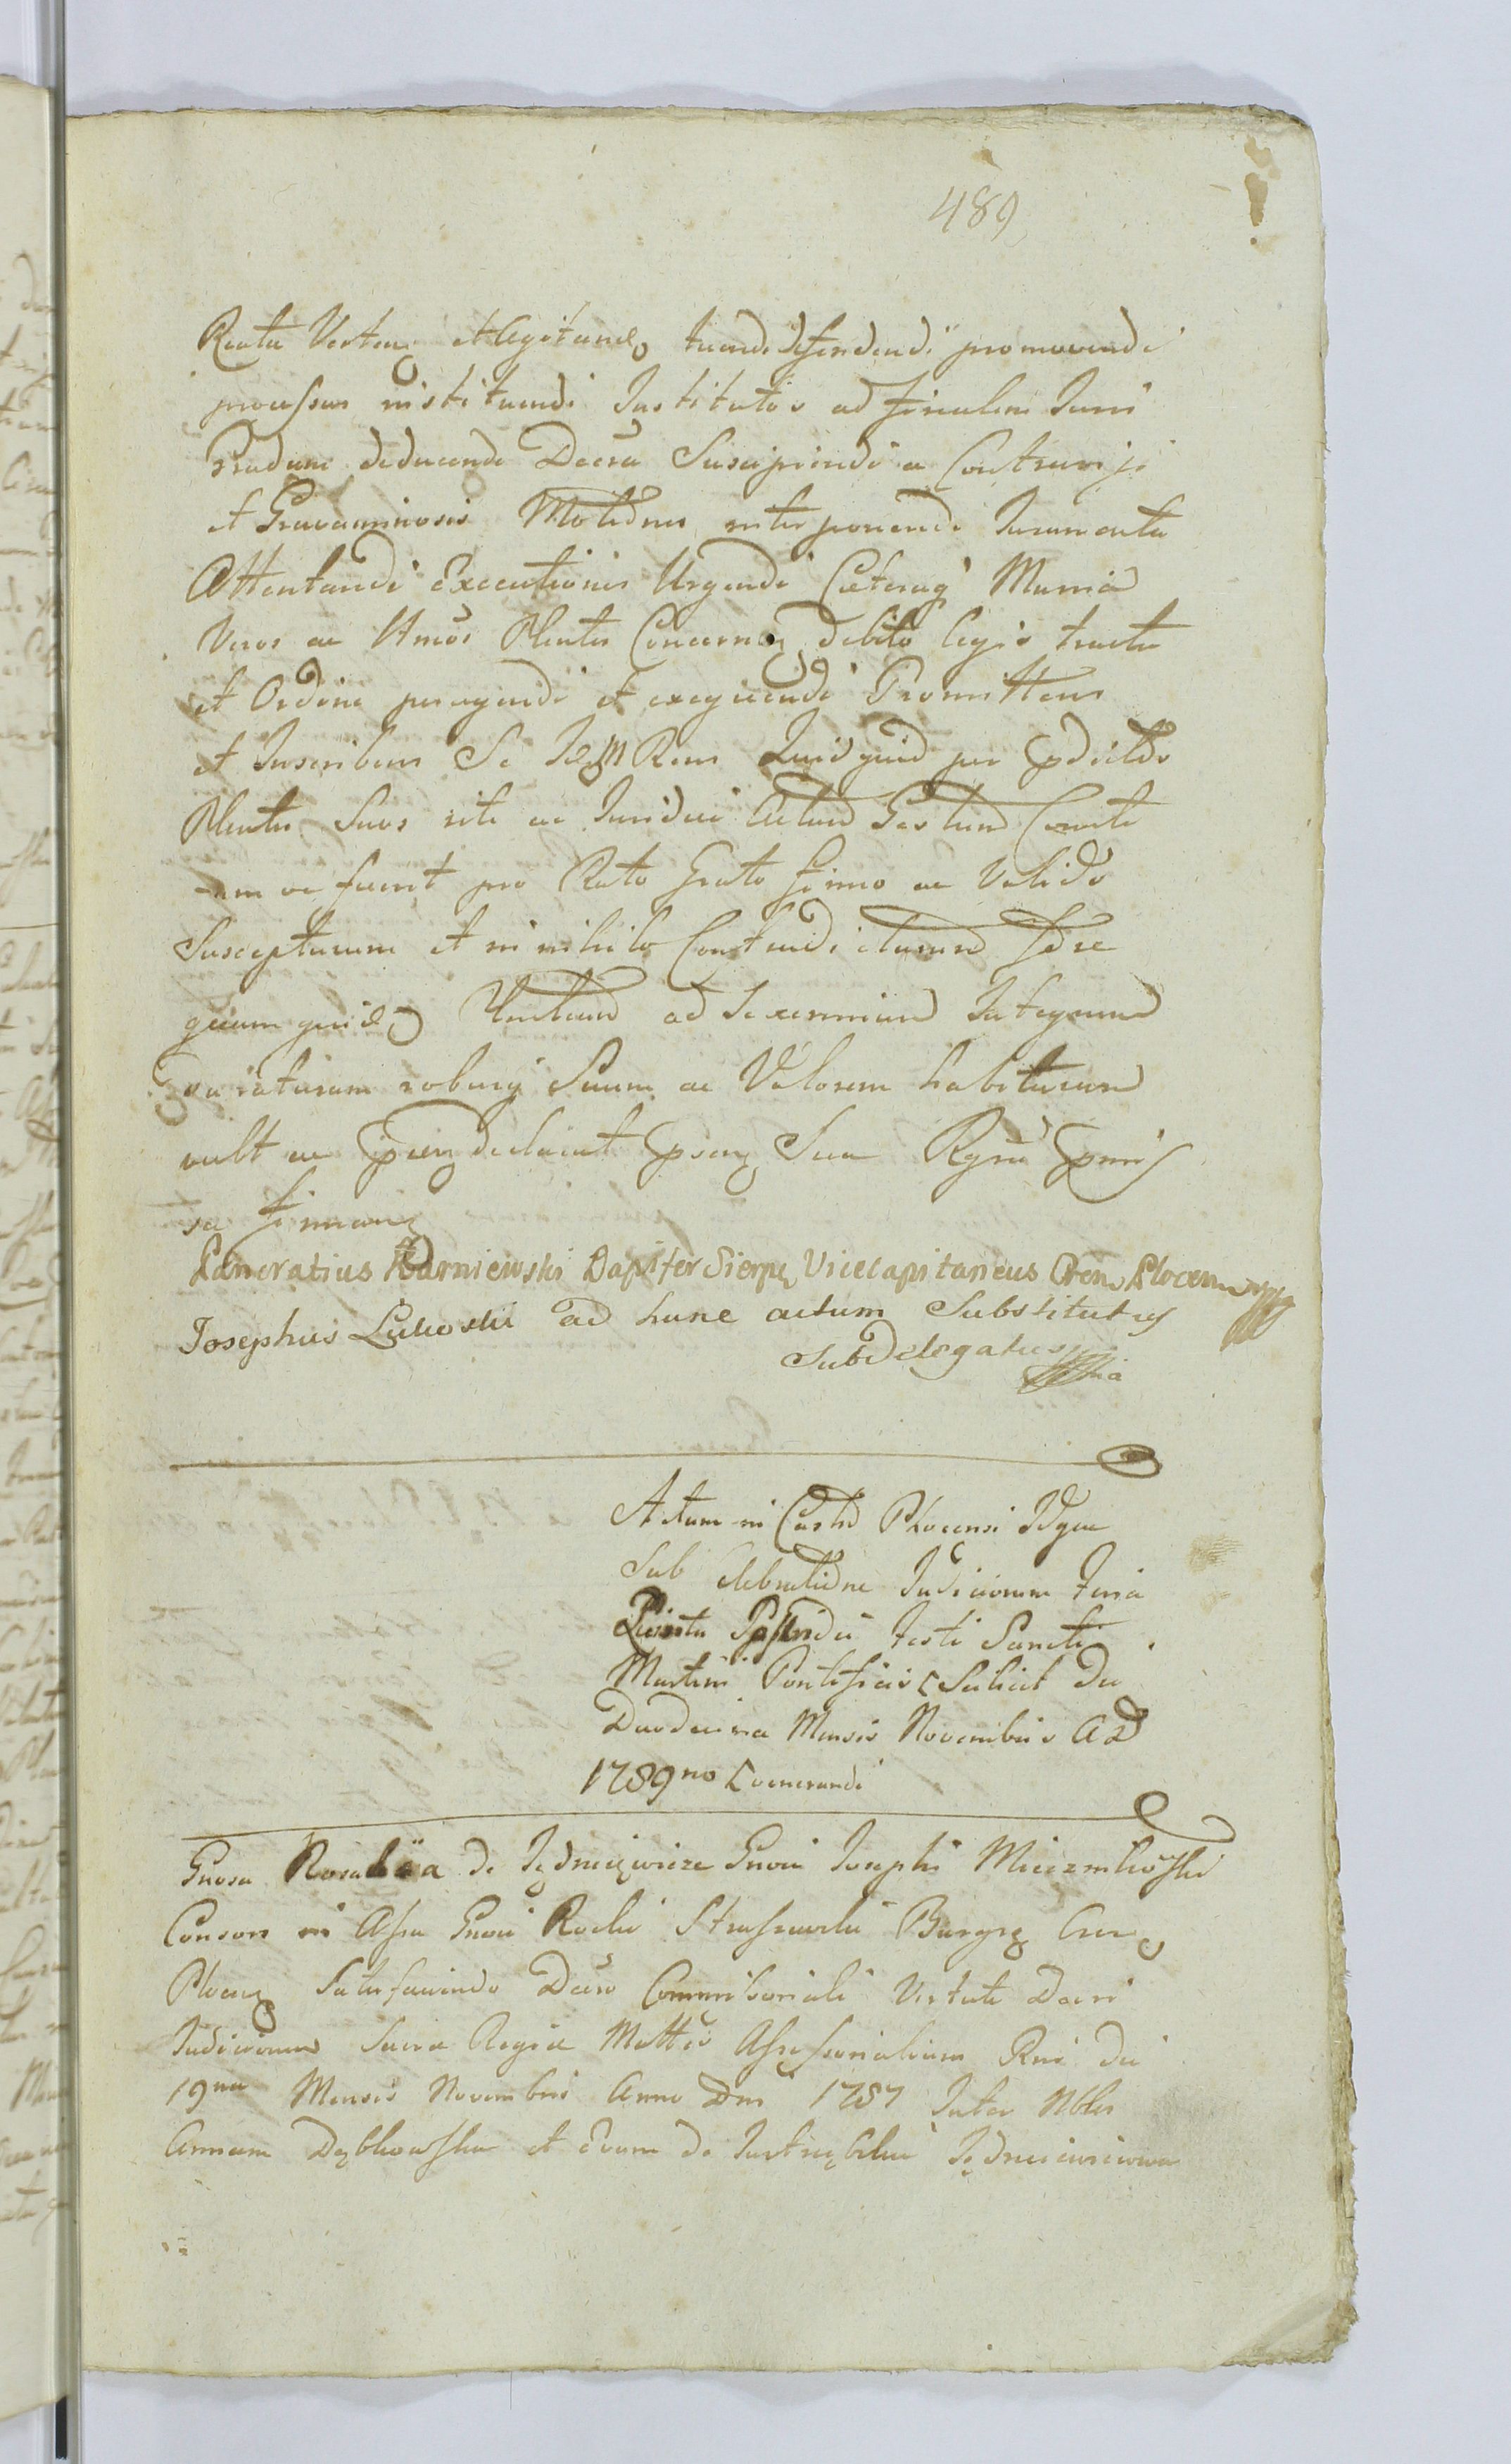 489
Reatu Verten et Agitand tuendi defendendi promovendi
processus instituendi Institutos ad finalem Juris
Gradum deducendi Decra Suscipiendi a Contrarijs
et Gravaminosis Motionem interponendi Juramenta
Attentandi Executiones Urgendi Caeteraq Munia
Veros ac Umos Plentes Concernen debito legis tractu
et Ordine peragendi et exequendi Promittens
et Inscribens Se Idem Rens Quidquid per Epdictos
Plentes Suos rite ac Juridice Actum Gestum Conten
tum ve fuerit pro Rato Grato firmo ac Valido
Suscepturum et in nihilo Contradicturum fore
ad Sexennium Integrum
duraturam roburq Suum ac Valorem habituram
vult ac declarat Suum
sa firman
Pancratius Karniewski Dapifer Sierpc Vicecapitaneus Plocen mpp
Josephus Lukoski ad hunc actum Substitutus
Subdelegatus
Actum in Castro Plocensi Idque
Sub Celebratione Judiciorum Feria
Quinta Postridie Festi Sancti
Martini Pontificis Scilicet Die
Duodecima Mensis Novembris AD
1789no
Gnosa Rosalia de Jędrzejewicze Gnosi Josephi Mierzenkowski
Consors in Assa Gnosi Rochi Straszewski Burgrz Cren
Plocen Satisfaciendo Decro Commissoriali Virtute Decri
Judiciorum Sacra Regia Mattis Assessorialium Rni Die
19na Mensis Novembris Anno Dni 1787 Inter Nbles
Annam Dębkowska et Evam de Jastrzębskie Jędrzejewiczowa